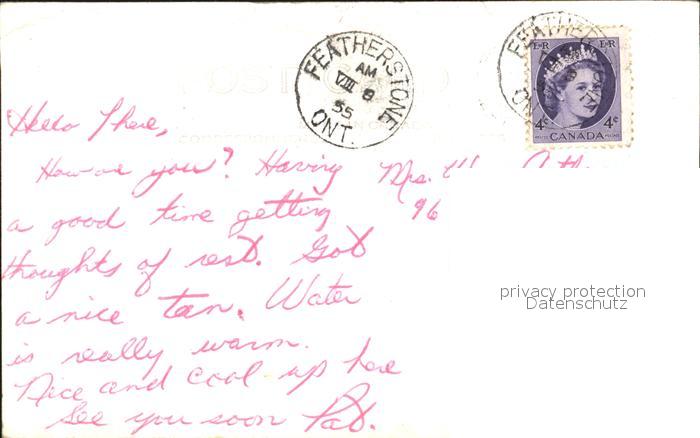 POST CARD
FEATHERSTONE
AM
VIII 8
55
ONT.
E R E R
4¢ 4¢
CANADA
Hello There,
How are you? Having
a good time getting
thoughts of rest. Got
a nice tan. Water
is really warm.
Nice and cool up here
See you soon Pat.
Mrs.
96
privacy protection
Datenschutz